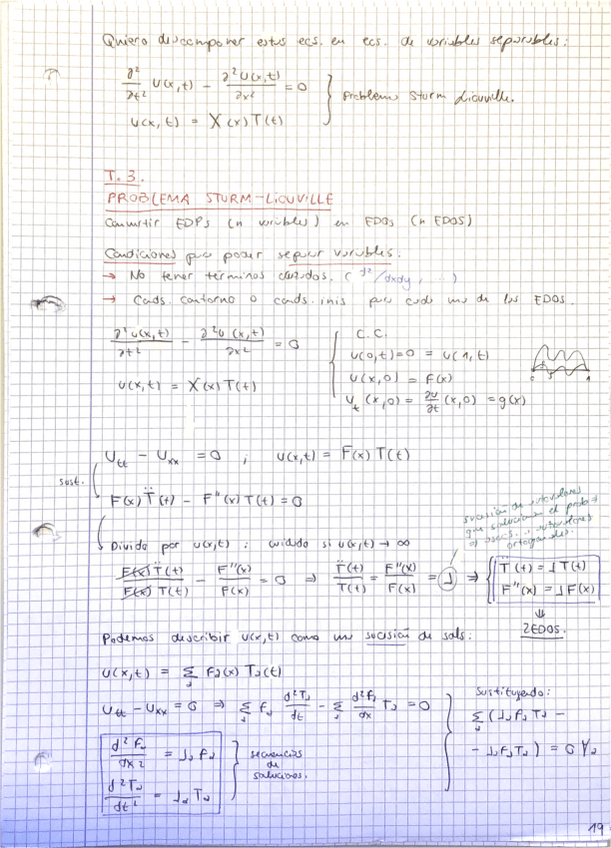 Quiero descomponer estas ecs. en ecs. de variables separables:
∂²/∂t² U(x,t) − ∂²U(x,t)/∂x² = 0 } problema Sturm Liouville.
u(x,t) = X(x)T(t)
T.3.
PROBLEMA STURM-LIOUVILLE
Convertir EDPs (n variables) en EDOs (n EDOS)
Condiciones para poder separar variables.
→ No tener términos cruzados. (d²/dxdy, ...)
→ Conds. contorno o conds. inis para cada una de las EDOS.
∂²u(x,t)/∂t² − ∂²u(x,t)/∂x² = 0
u(x,t) = X(x)T(t)
C.C.
u(0,t)=0 = u(1,t)
u(x,0) = F(x)
U_t(x,0) = ∂u/∂t (x,0) = g(x)
0 1
U_tt − U_xx = 0 ; u(x,t) = F(x) T(t)
sust.
F(x) T̈(t) − F''(x) T(t) = 0
sucesión de autovalores
que solucionan el prob →
ortogonales.
Divido por u(x,t) ; cuidado si u(x,t) → ∞
F(x)T̈(t)/F(x)T(t) − F''(x)/F(x) = 0 ⇒ T̈(t)/T(t) = F''(x)/F(x) = λ ⇒ { T̈(t) = λ T(t)
F''(x) = λ F(x)
⇓
2 EDOS.
Podemos describir u(x,t) como una sucesión de sols:
u(x,t) = Σ_λ F_λ(x) T_λ(t)
U_tt − U_xx = 0 ⇒ Σ_λ F_λ d²T_λ/dt − Σ_λ d²F_λ/dx T_λ = 0
Sustituyendo:
Σ_λ (λ_λ F_λ T_λ −
− λ_λ F_λ T_λ) = 0 ∀λ
d²F_λ/dx² = λ_λ F_λ
d²T_λ/dt² = λ_λ T_λ
secuencias
de
soluciones.
19